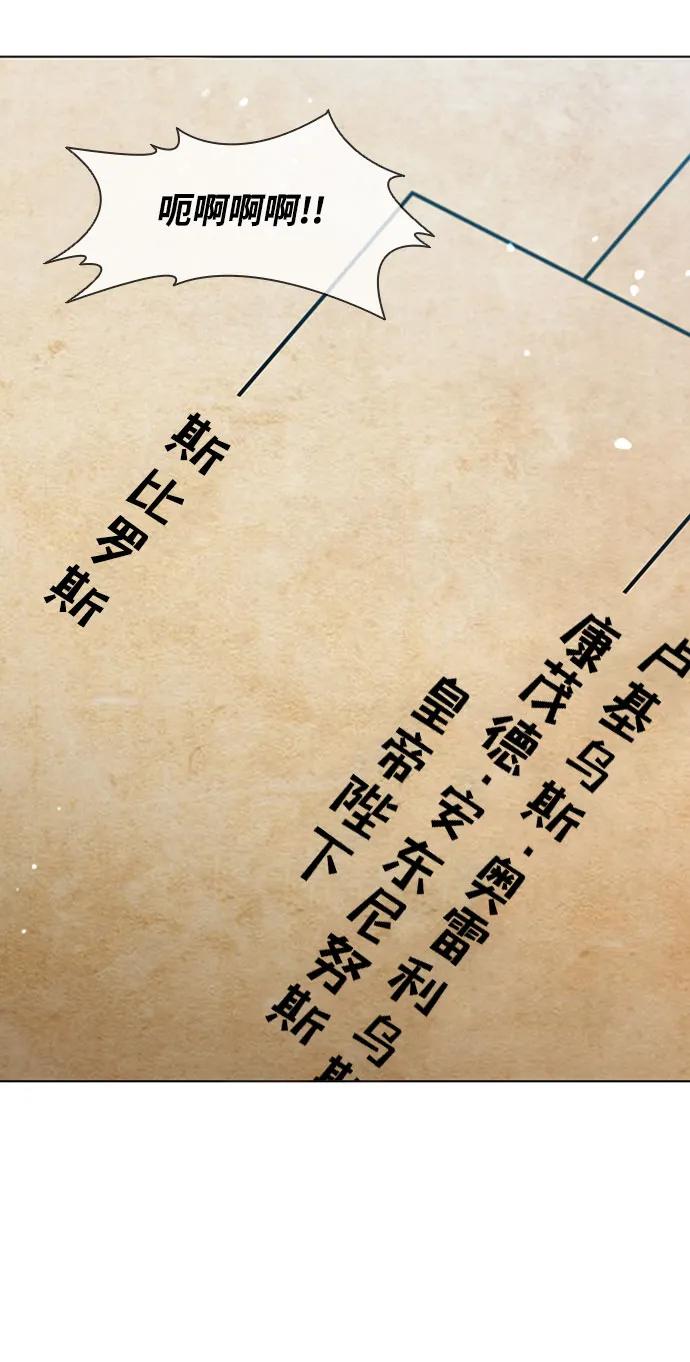 呃啊啊啊!!
斯比罗斯
卢基乌斯·奥雷利乌斯
康茂德·安东尼努斯
皇帝陛下